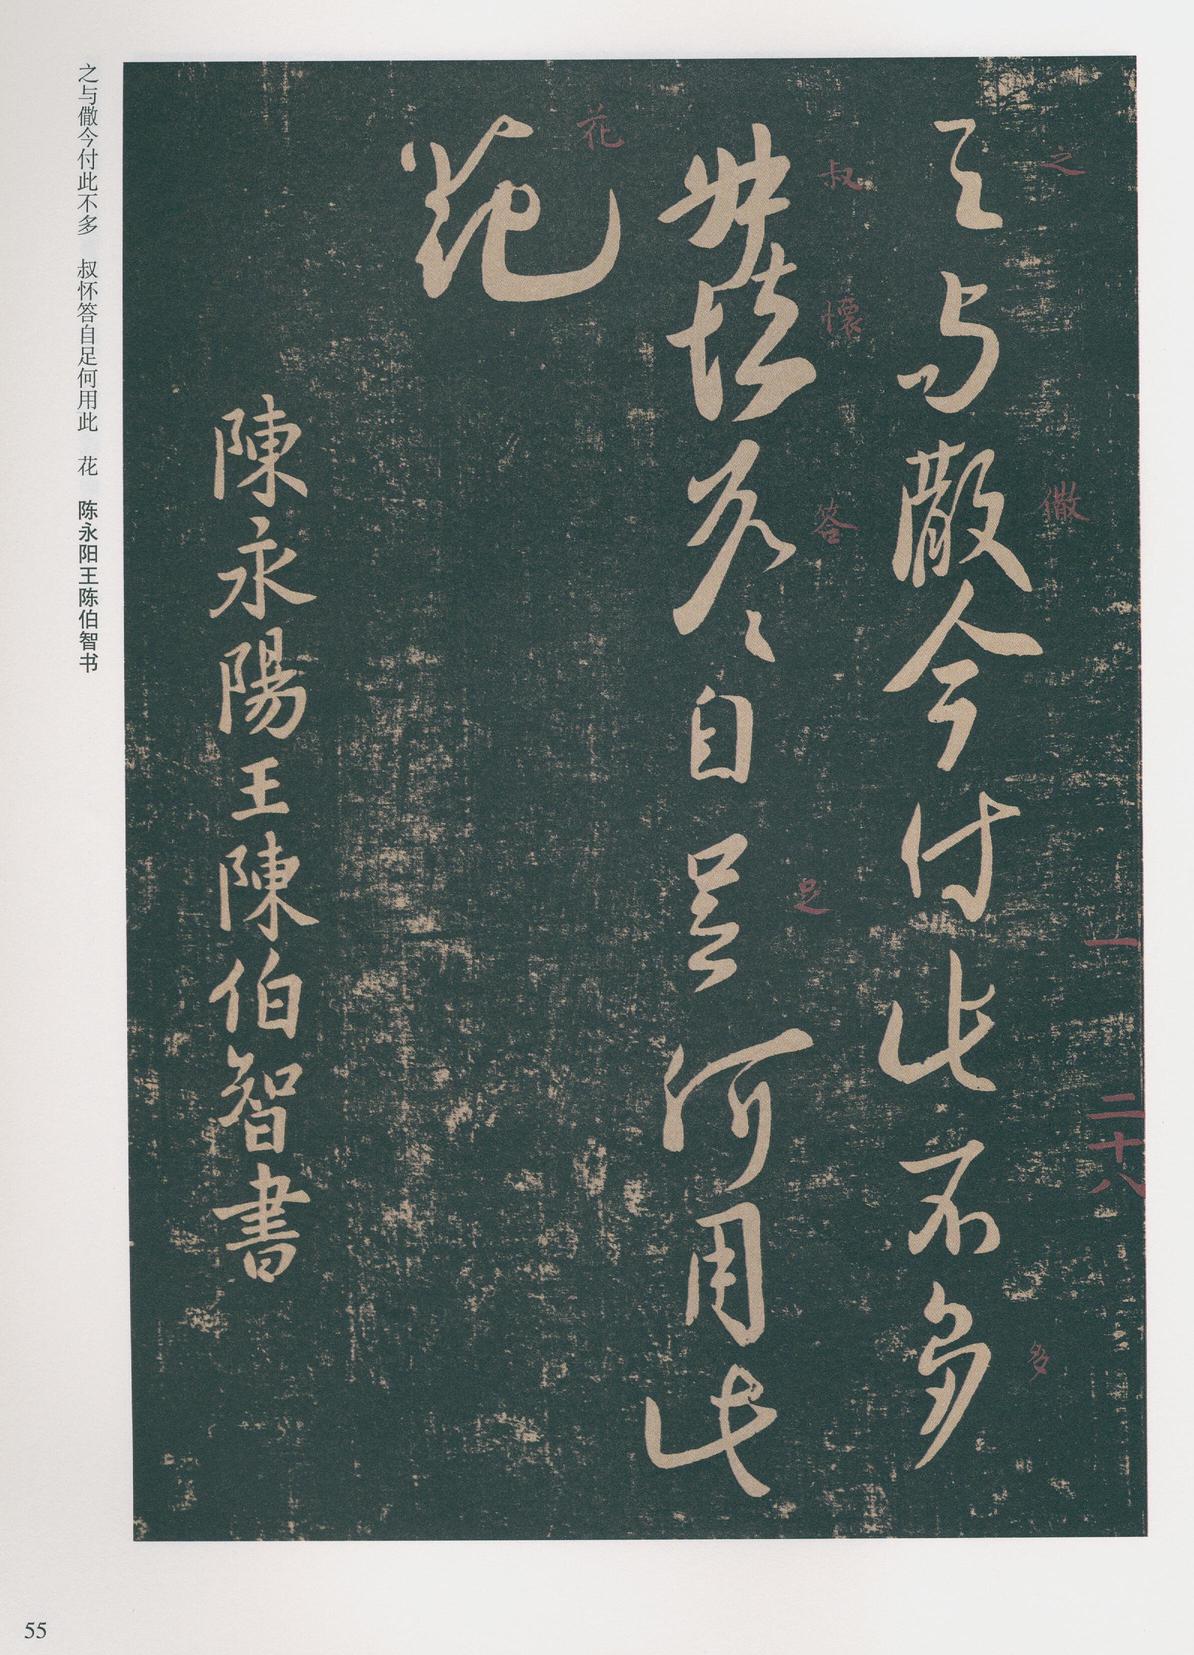 之与儆今付此不多
叔懷答自足何用此
花
陳永陽王陳伯智書
之
儆
多
一
二十八
叔
懷
答
足
花
之与儆今付此不多　叔怀答自足何用此　花　陈永阳王陈伯智书
55